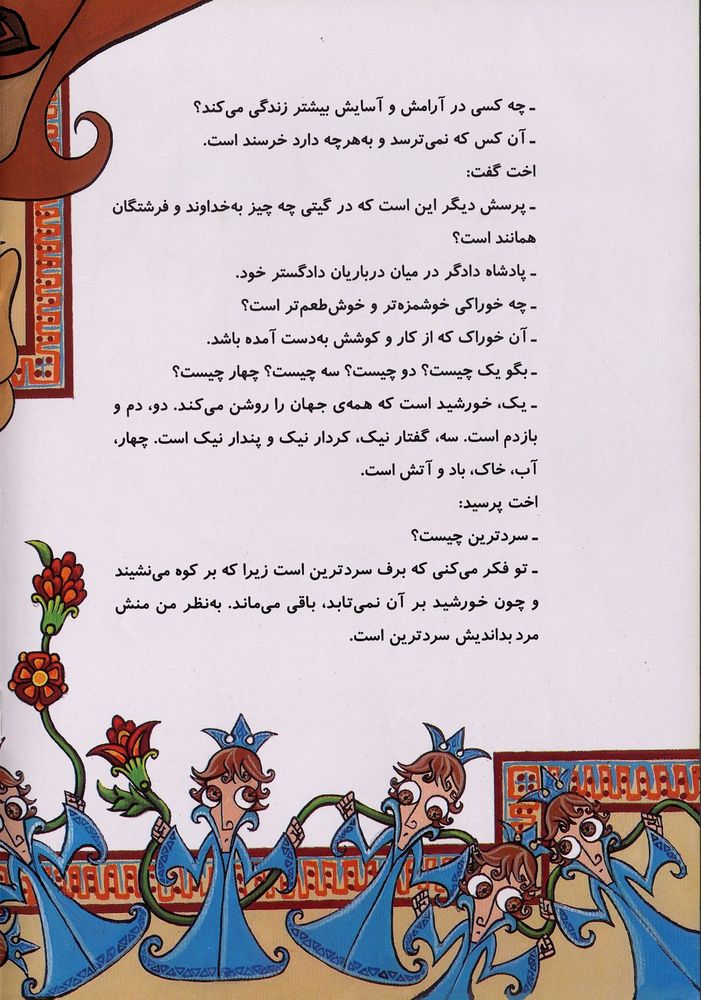 ـ چه کسی در آرامش و آسایش بیشتر زندگی می‌کند؟
ـ آن کس که نمی‌ترسد و به‌هرچه دارد خرسند است.
اخت گفت:
ـ پرسش دیگر این است که در گیتی چه چیز به‌خداوند و فرشتگان
همانند است؟
ـ پادشاه دادگر در میان درباریان دادگستر خود.
ـ چه خوراکی خوشمزه‌تر و خوش‌طعم‌تر است؟
ـ آن خوراک که از کار و کوشش به‌دست آمده باشد.
ـ بگو یک چیست؟ دو چیست؟ سه چیست؟ چهار چیست؟
ـ یک، خورشید است که همه‌ی جهان را روشن می‌کند. دو، دم و
بازدم است. سه، گفتار نیک، کردار نیک و پندار نیک است. چهار،
آب، خاک، باد و آتش است.
اخت پرسید:
ـ سردترین چیست؟
ـ تو فکر می‌کنی که برف سردترین است زیرا که بر کوه می‌نشیند
و چون خورشید بر آن نمی‌تابد، باقی می‌ماند. به‌نظر من منش
مرد بداندیش سردترین است.